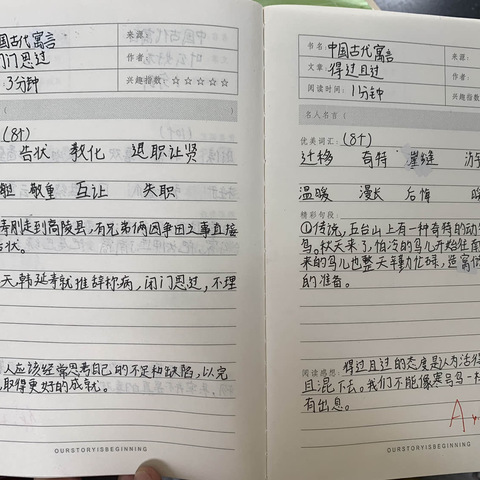 国古代寓言
闭门思过
3分钟
来源:
作者:
兴趣指数: ☆☆☆☆☆
(8个)
告状 教化 退职让贤
敬重 互让 失职
寿刚走到高陵县,而兄弟俩因争田之事直接
告状。
天,韩延寿就推辞称病,闭门思过,不理
人应该经常思考自己的不足和缺陷,以完
取得更好的成就。
OURSTORYISBEGINNING
书名: 中国古代寓言
文章: 得过且过
阅读时间: 1分钟
来源:
作者:
兴趣指数:
名人名言(
优美词汇: (8个)
迁移 奇特 崖缝
温暖 漫长 后悔
精彩句段:
①传说,五台山上有一种奇特的动
鸟。秋天来了,怕冷的鸟儿开始往南
来的鸟儿也整天辛勤忙碌,造窝做
的准备。
阅读感想: 得过且过的态度是认为活得
且混下去。我们不能像寒号鸟一样
有出息。
A
OURSTORYISBEGINNING